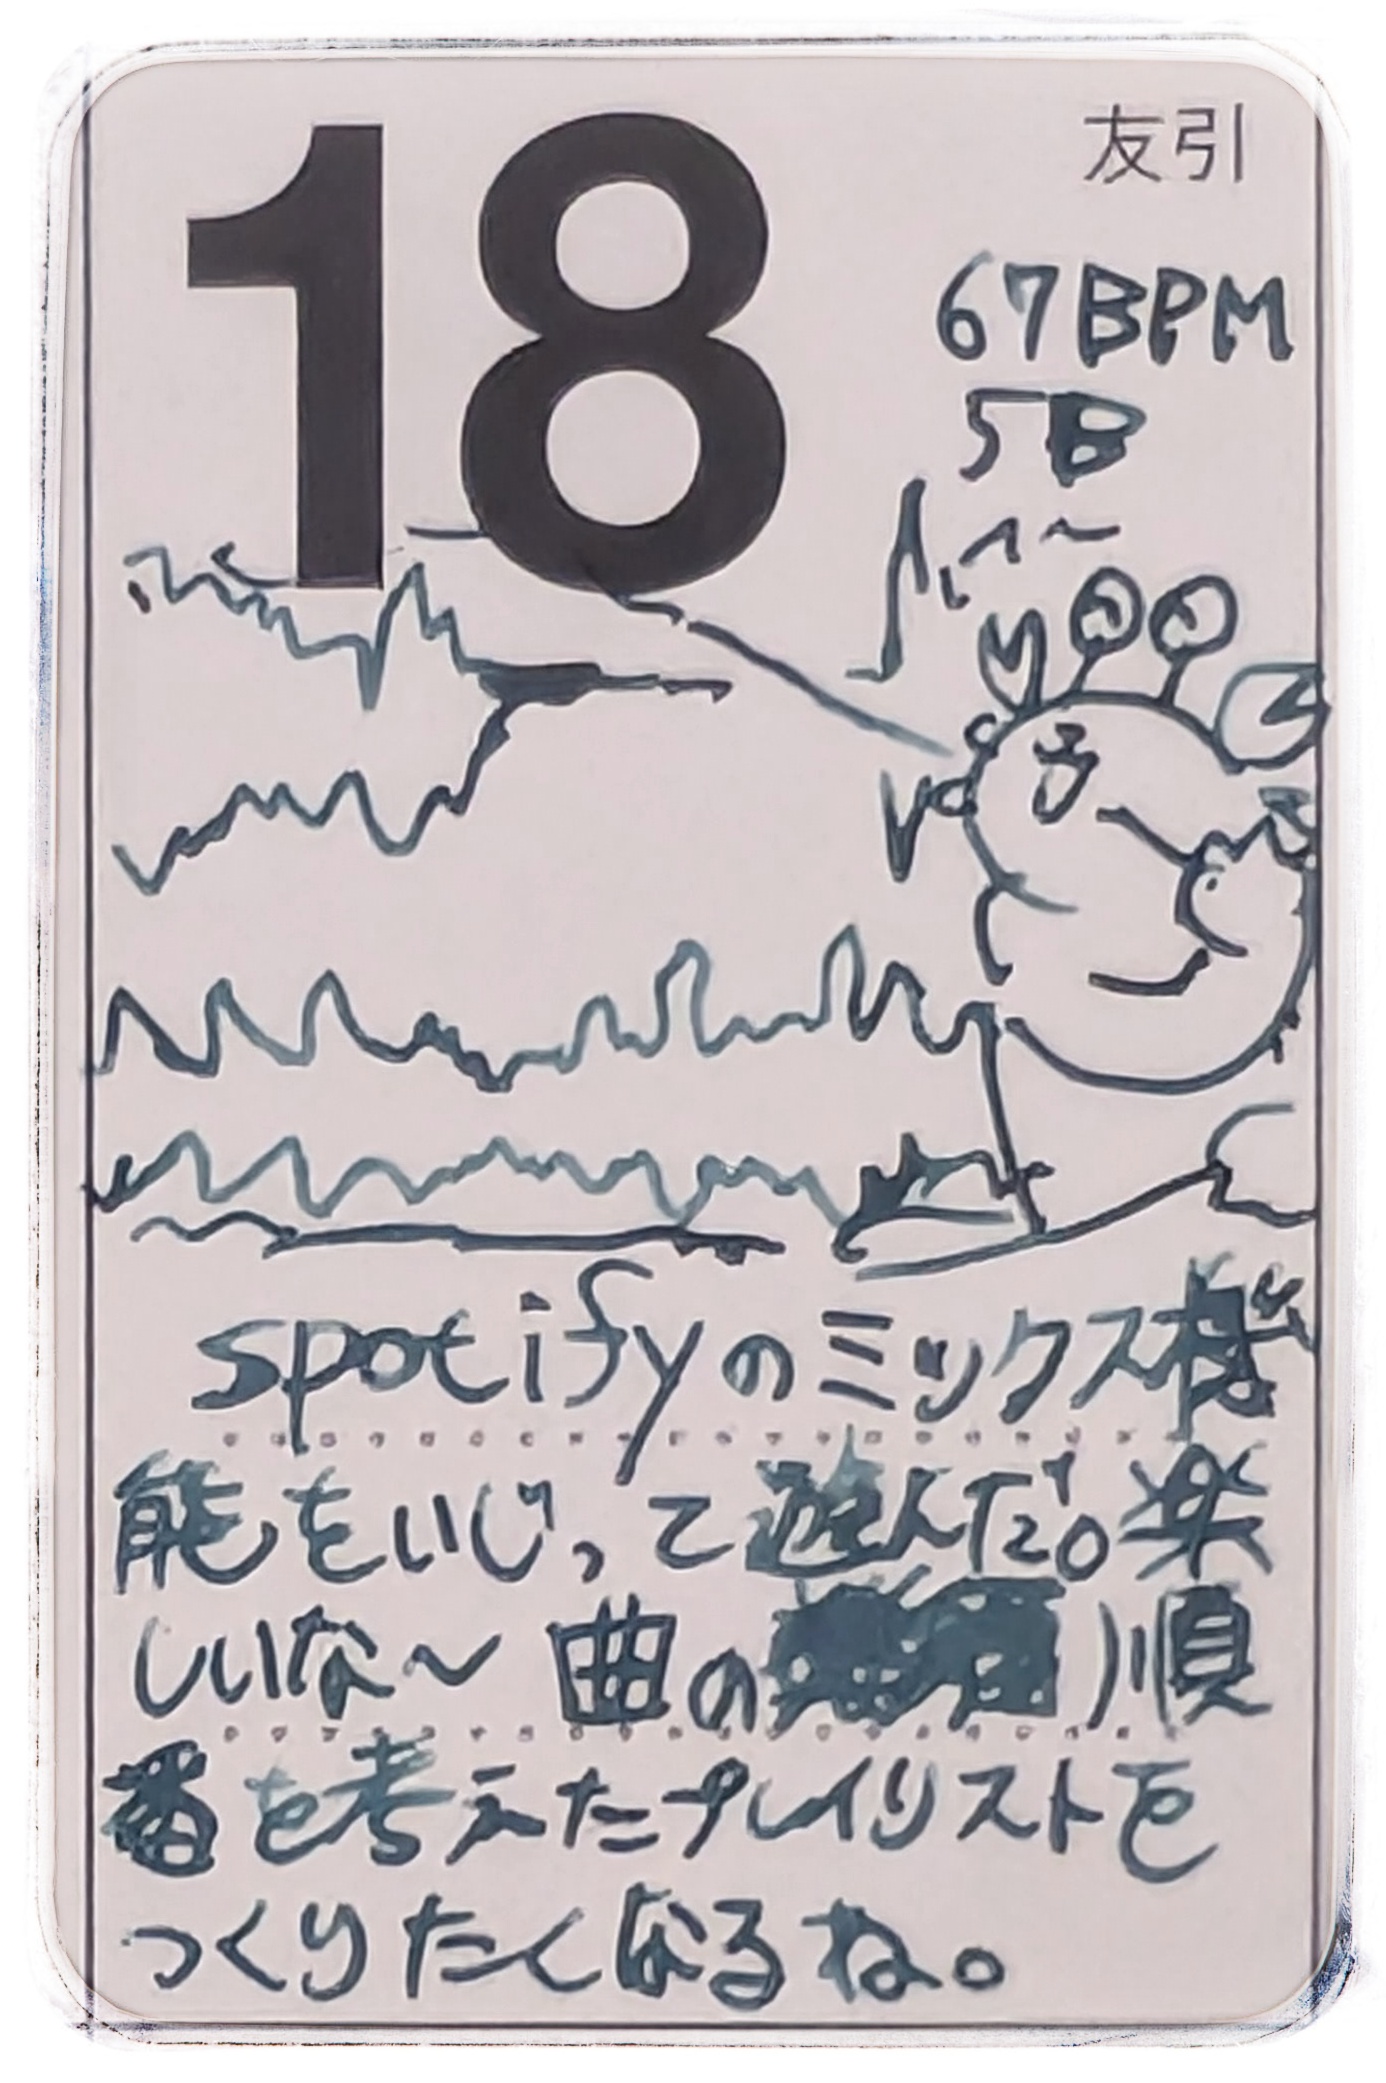 18
友引
67BPM
5B
spotifyのミックス機
能をいじって遊んだ。楽
しいな〜 曲の順
番を考えたプレイリストを
つくりたくなるね。